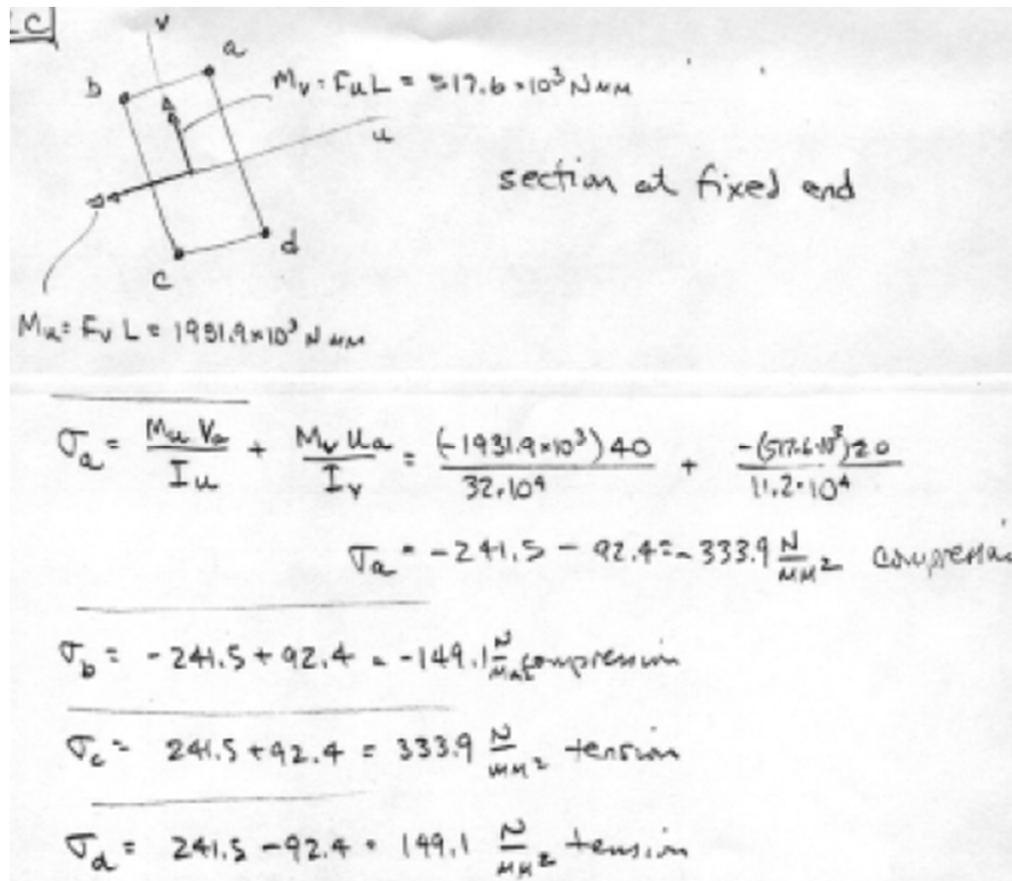 C
v
a
b
M_v = F_u L = 517.6 × 10³ N mm
u
section at fixed end
d
c
M_u = F_v L = 1931.9×10³ N mm
σ_a = M_u V_a / I_u + M_v u_a / I_v = (-1931.9×10³) 40 / 32·10⁴ + -(517.6·10³) 20 / 11.2·10⁴
σ_a = -241.5 - 92.4 = -333.9 N/mm² compression
σ_b = -241.5 + 92.4 = -149.1 N/mm² compression
σ_c = 241.5 + 92.4 = 333.9 N/mm² tension
σ_d = 241.5 - 92.4 = 149.1 N/mm² tension